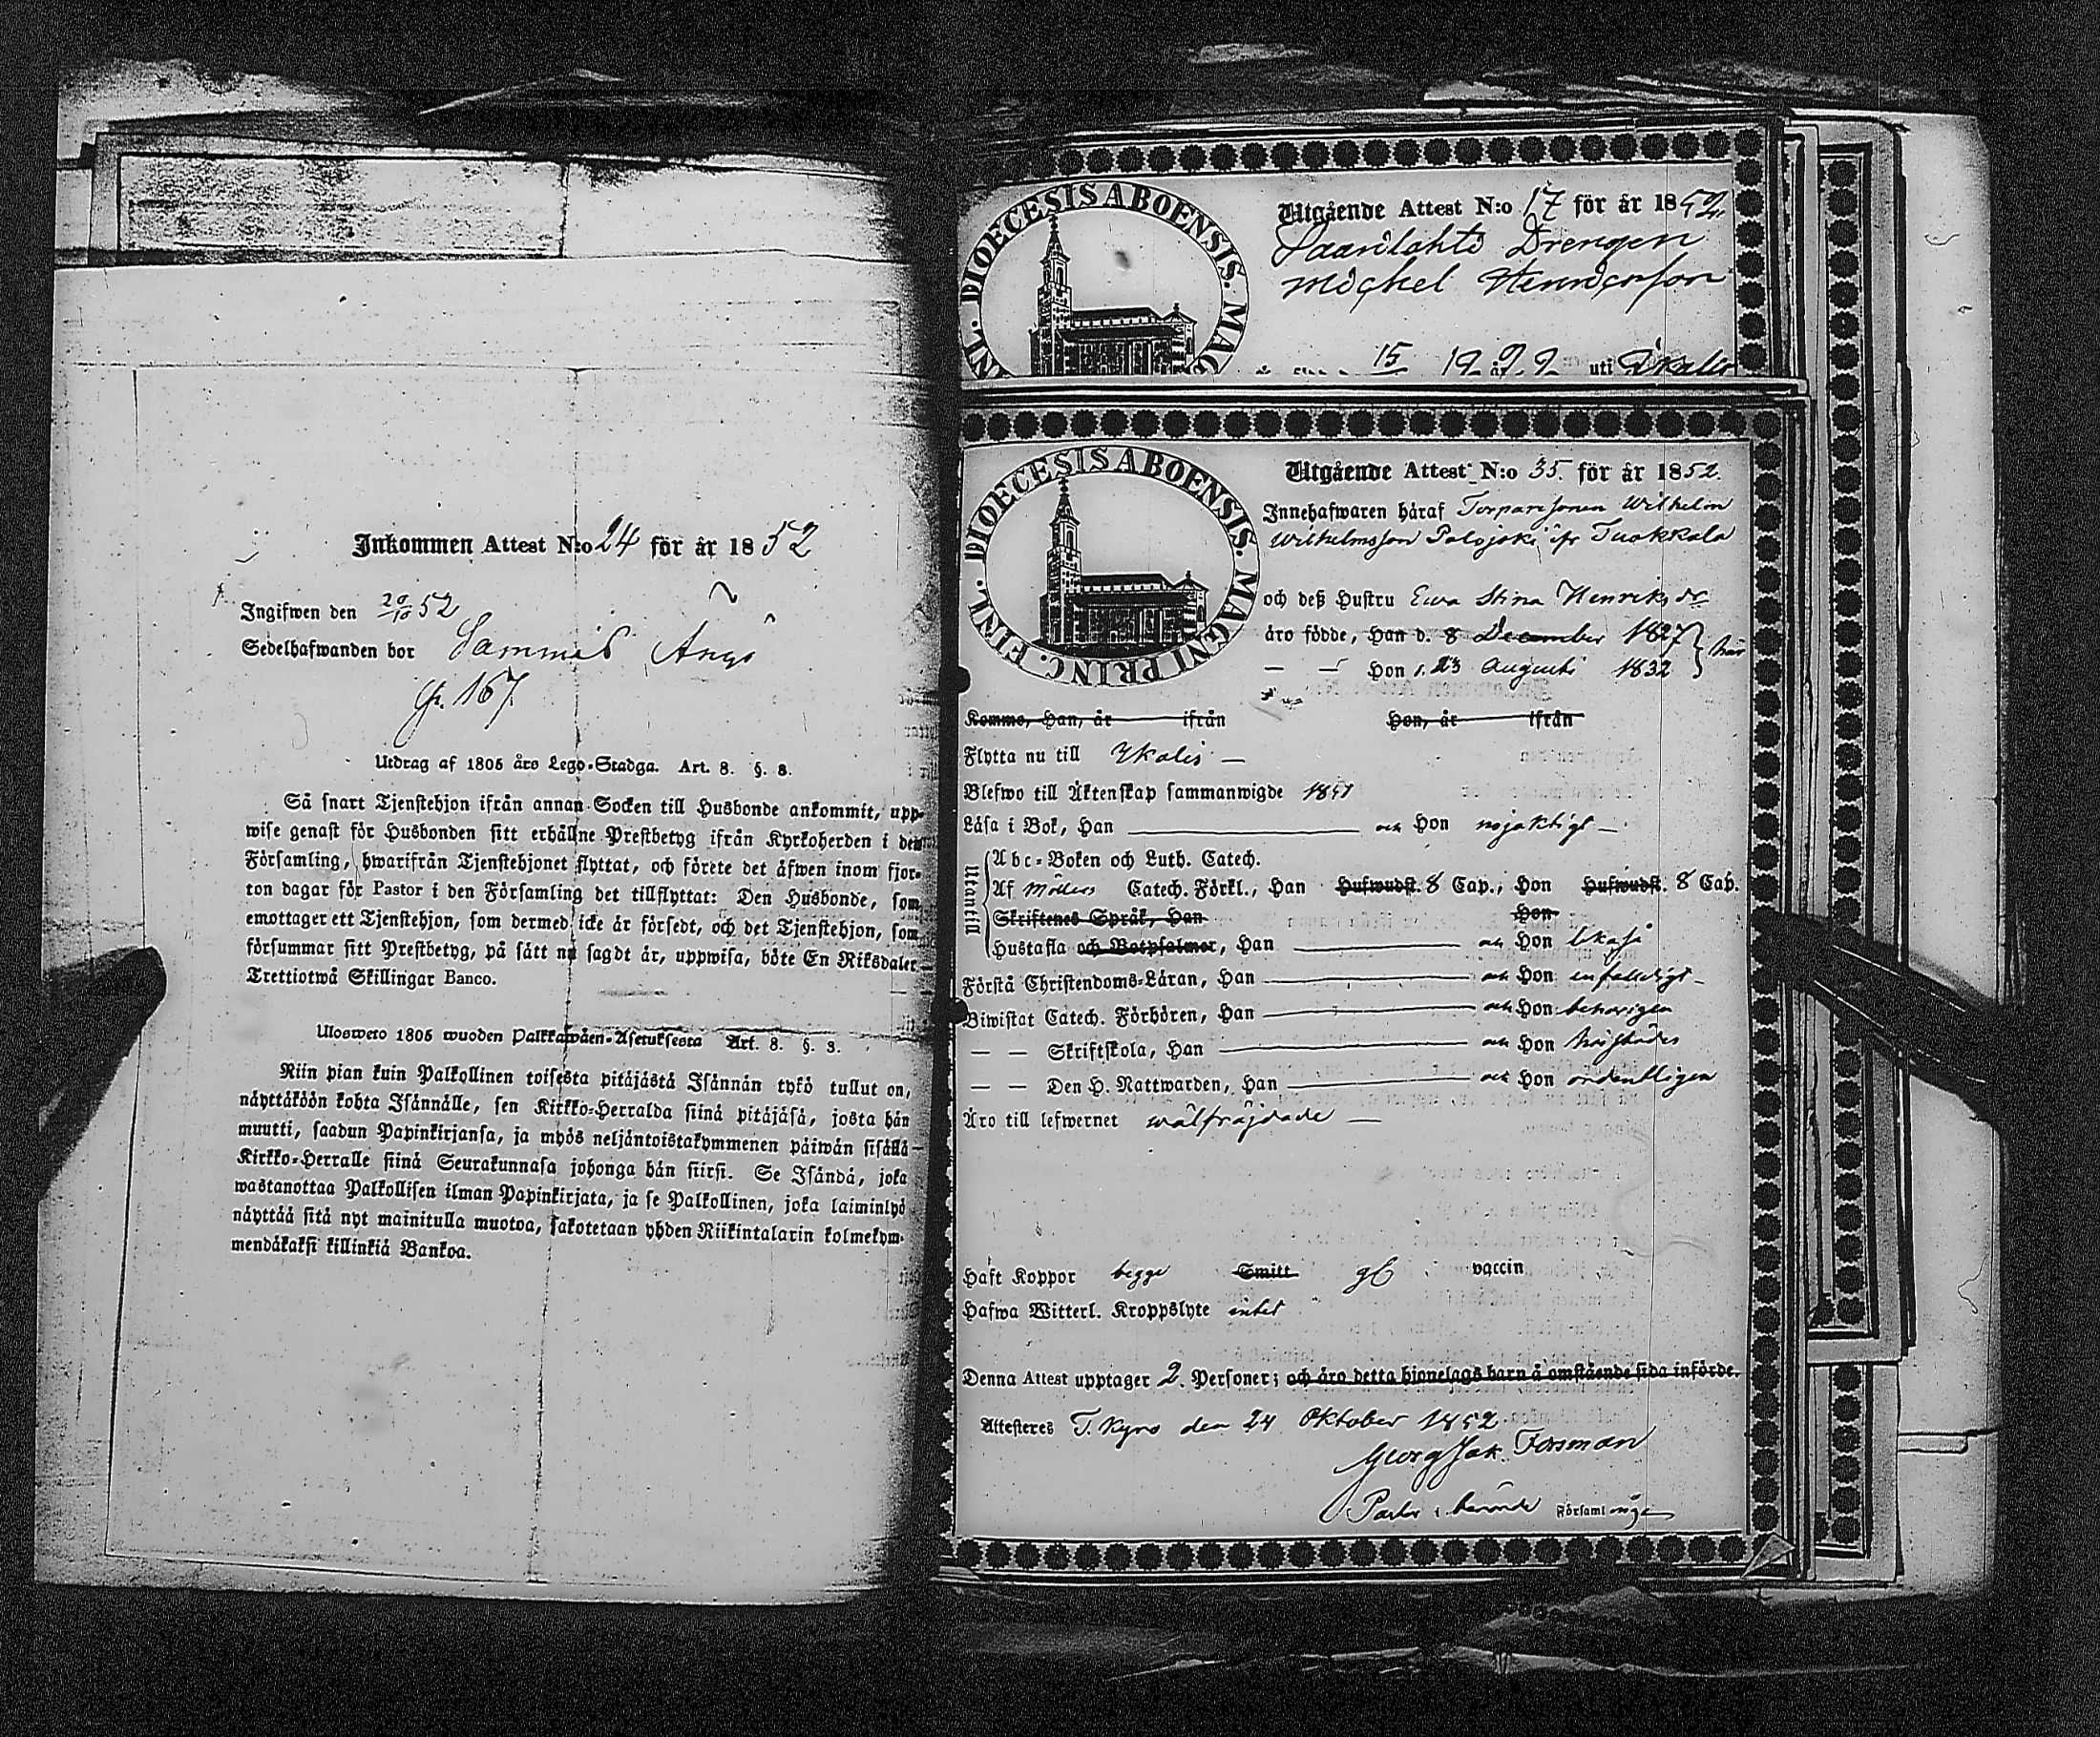 Inkommen Attest N:o 24 för år 1852
Ingifwen den 20/10 52
Sedelhafwanden bor Sammis
p. 167
Utdrag af 1805 års Lego-Stadga. Art. 8. §. 8.
Så snart Tjenstehjon ifrån annan Socken till Husbonde ankommit, upp-
wise genast för Husbonden sitt erhållne Prestbetyg ifrån Kyrkoherden i den
Församling, hwarifrån Tjenstehjonet flyttat, och förete det äfwen inom fjor-
ton dagar för Pastor i den Församling det tillflyttat: Den Husbonde, som
emottager ett Tjenstehjon, som dermed icke är försedt, och det Tjenstehjon, som
försummar sitt Prestbetyg, på sätt nu sagdt är, uppwisa, böte En Riksdaler
Trettiotwå Skillingar Banco.
Ulosweto 1805 wuoden Palkkawäen-Asetuksesta Art. 8. §. 3.
Niin pian kuin Palkollinen toisesta pitäjästä Isännän tykö tullut on,
näyttäköön kohta Isännälle, sen Kirkko-Herralda siinä pitäjäsä, josta hän
muutti, saadun Papinkirjansa, ja myös neljäntoistakymmenen päiwän sisällä
Kirkko-Herralle siinä Seurakunnasa johonga hän siirsi. Se Isändä, joka
wastanottaa Palkollisen ilman Papinkirjata, ja se Palkollinen, joka laiminlyö
näyttää sitä nyt mainitulla muotoa, sakotetaan yhden Riikintalarin kolmekym-
mendäkaksi killinkiä Bankoa.
DIOECESIS ABOENSIS. MAG
INL.
Utgående Attest N:o 17 för år 1852.
Saarilahti Drengen
Michel Henricsson
15 uti Ikalis
DIOECESIS ABOENSIS. MAGNI PRINC. FINL.
Utgående Attest N:o 35. för år 1852.
Innehafwaren häraf Torparesonen Wilhelm
Wilhelmsson Palojoki ifr Tuokkola
och deß Hustru Ewa Stina Henriksdr
äro födde, Han d. 8 December 1827 } här
— — Hon d. 23 Augusti 1832
Komne, Han, år ifrån Hon, år ifrån
Flytta nu till Ikalis —
Blefwo till Äktenskap sammanwigde 1851
Läsa i Bok, Han och Hon nöjaktigt —
Utantill
Abc-Boken och Luth. Catech.
Af Möllers Catech. Förkl., Han Hufwudst. 8 Cap., Hon Hufwudst. 8 Cap.
Skriftenes Språk, Han Hon
Hustafla och Botpsalmer, Han och Hon
Förstå Christendoms-Läran, Han och Hon enfaldigt —
Biwistat Catech. Förhören, Han och Hon behörigen
— — Skriftskola, Han och Hon
— — Den H. Nattwarden, Han och Hon ordentligen
Äro till lefwernet wälfräjdade —
Haft Koppor begge Smitt vaccin
Hafwa Witterl. Kroppslyte intet
Denna Attest upptager 2. Personer; och äro detta hjonelags barn å omstående sida införde.
Attesteres T. Kyro den 24 Oktober 1852.
Georg Jak. Forsman
Pastor i berörde Församlingen